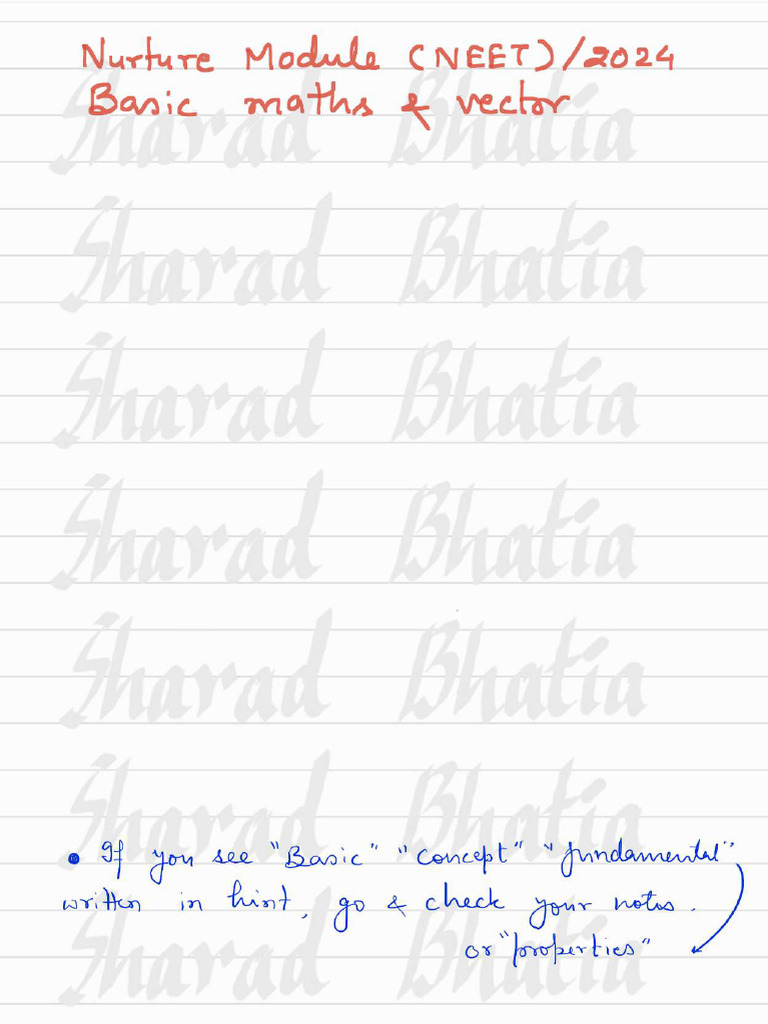 Nurture Module (NEET)/2024
Basic maths & vector
Sharad Bhatia
Sharad Bhatia
Sharad Bhatia
Sharad Bhatia
Sharad Bhatia
Sharad Bhatia
• If you see "Basic" "concept" "fundamental"
written in hint, go & check your notes.
or "properties"
Sharad Bhatia